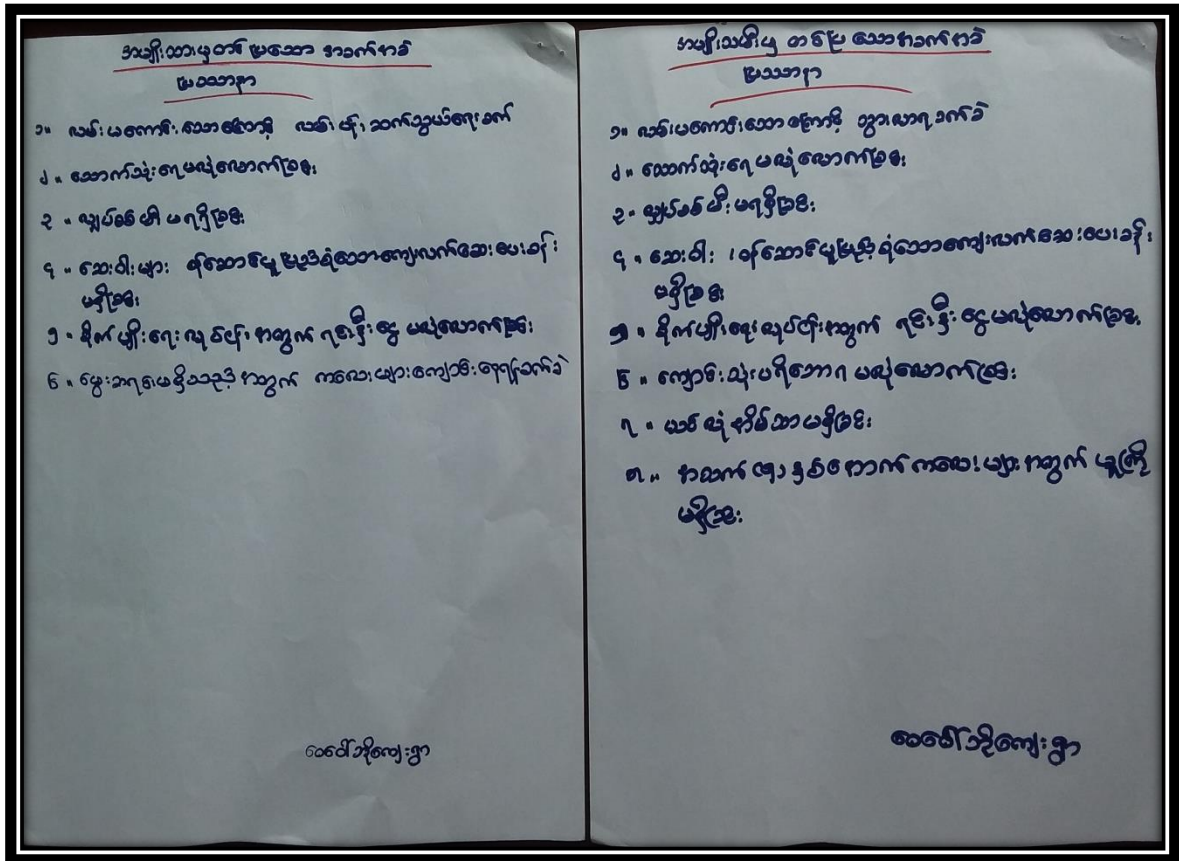 အမျိုးသားမှ တင်ပြသော အခက်အခဲ
ပြဿနာ
၁။ လမ်းမကောင်းသောကြောင့် လမ်းပန်းဆက်သွယ်ရေးခက်
၂။ သောက်သုံးရေမလုံလောက်ခြင်း
၃။ လျှပ်စစ်မီးမရရှိခြင်း
၄။ ဆေးဝါးများ ဝန်ဆောင်မှုပြည့်စုံသောကျေးလက်ဆေးပေးခန်း
မရှိခြင်း
၅။ စိုက်ပျိုးရေးလုပ်ငန်းအတွက် ရင်းနှီးငွေ မလုံလောက်ခြင်း
၆။ မွေးစာရင်းမရှိသည့်အတွက် ကလေးများကျောင်းနေရန်ခက်ခဲ
ဝေပေါ်ဘိုကျေးရွာ
အမျိုးသမီးမှ တင်ပြသောအခက်အခဲ
ပြဿနာ
၁။ လမ်းမကောင်းသောကြောင့် သွားလာရခက်ခဲ
၂။ သောက်သုံးရေမလုံလောက်ခြင်း
၃။ လျှပ်စစ်မီးမရရှိခြင်း
၄။ ဆေးဝါး၊ ဝန်ဆောင်မှုပြည့်စုံသောကျေးလက်ဆေးပေးခန်း
မရှိခြင်း
၅။ စိုက်ပျိုးရေးလုပ်ငန်းအတွက် ရင်းနှီးငွေမလုံလောက်ခြင်း
၆။ ကျောင်းသုံးပရိဘောဂ မလုံလောက်ခြင်း
၇။ ယင်လုံအိမ်သာမရှိခြင်း
၈။ အသက် ၅နှစ်အောက် ကလေးများအတွက် မူကြို
မရှိခြင်း
ဝေပေါ်ဘိုကျေးရွာ